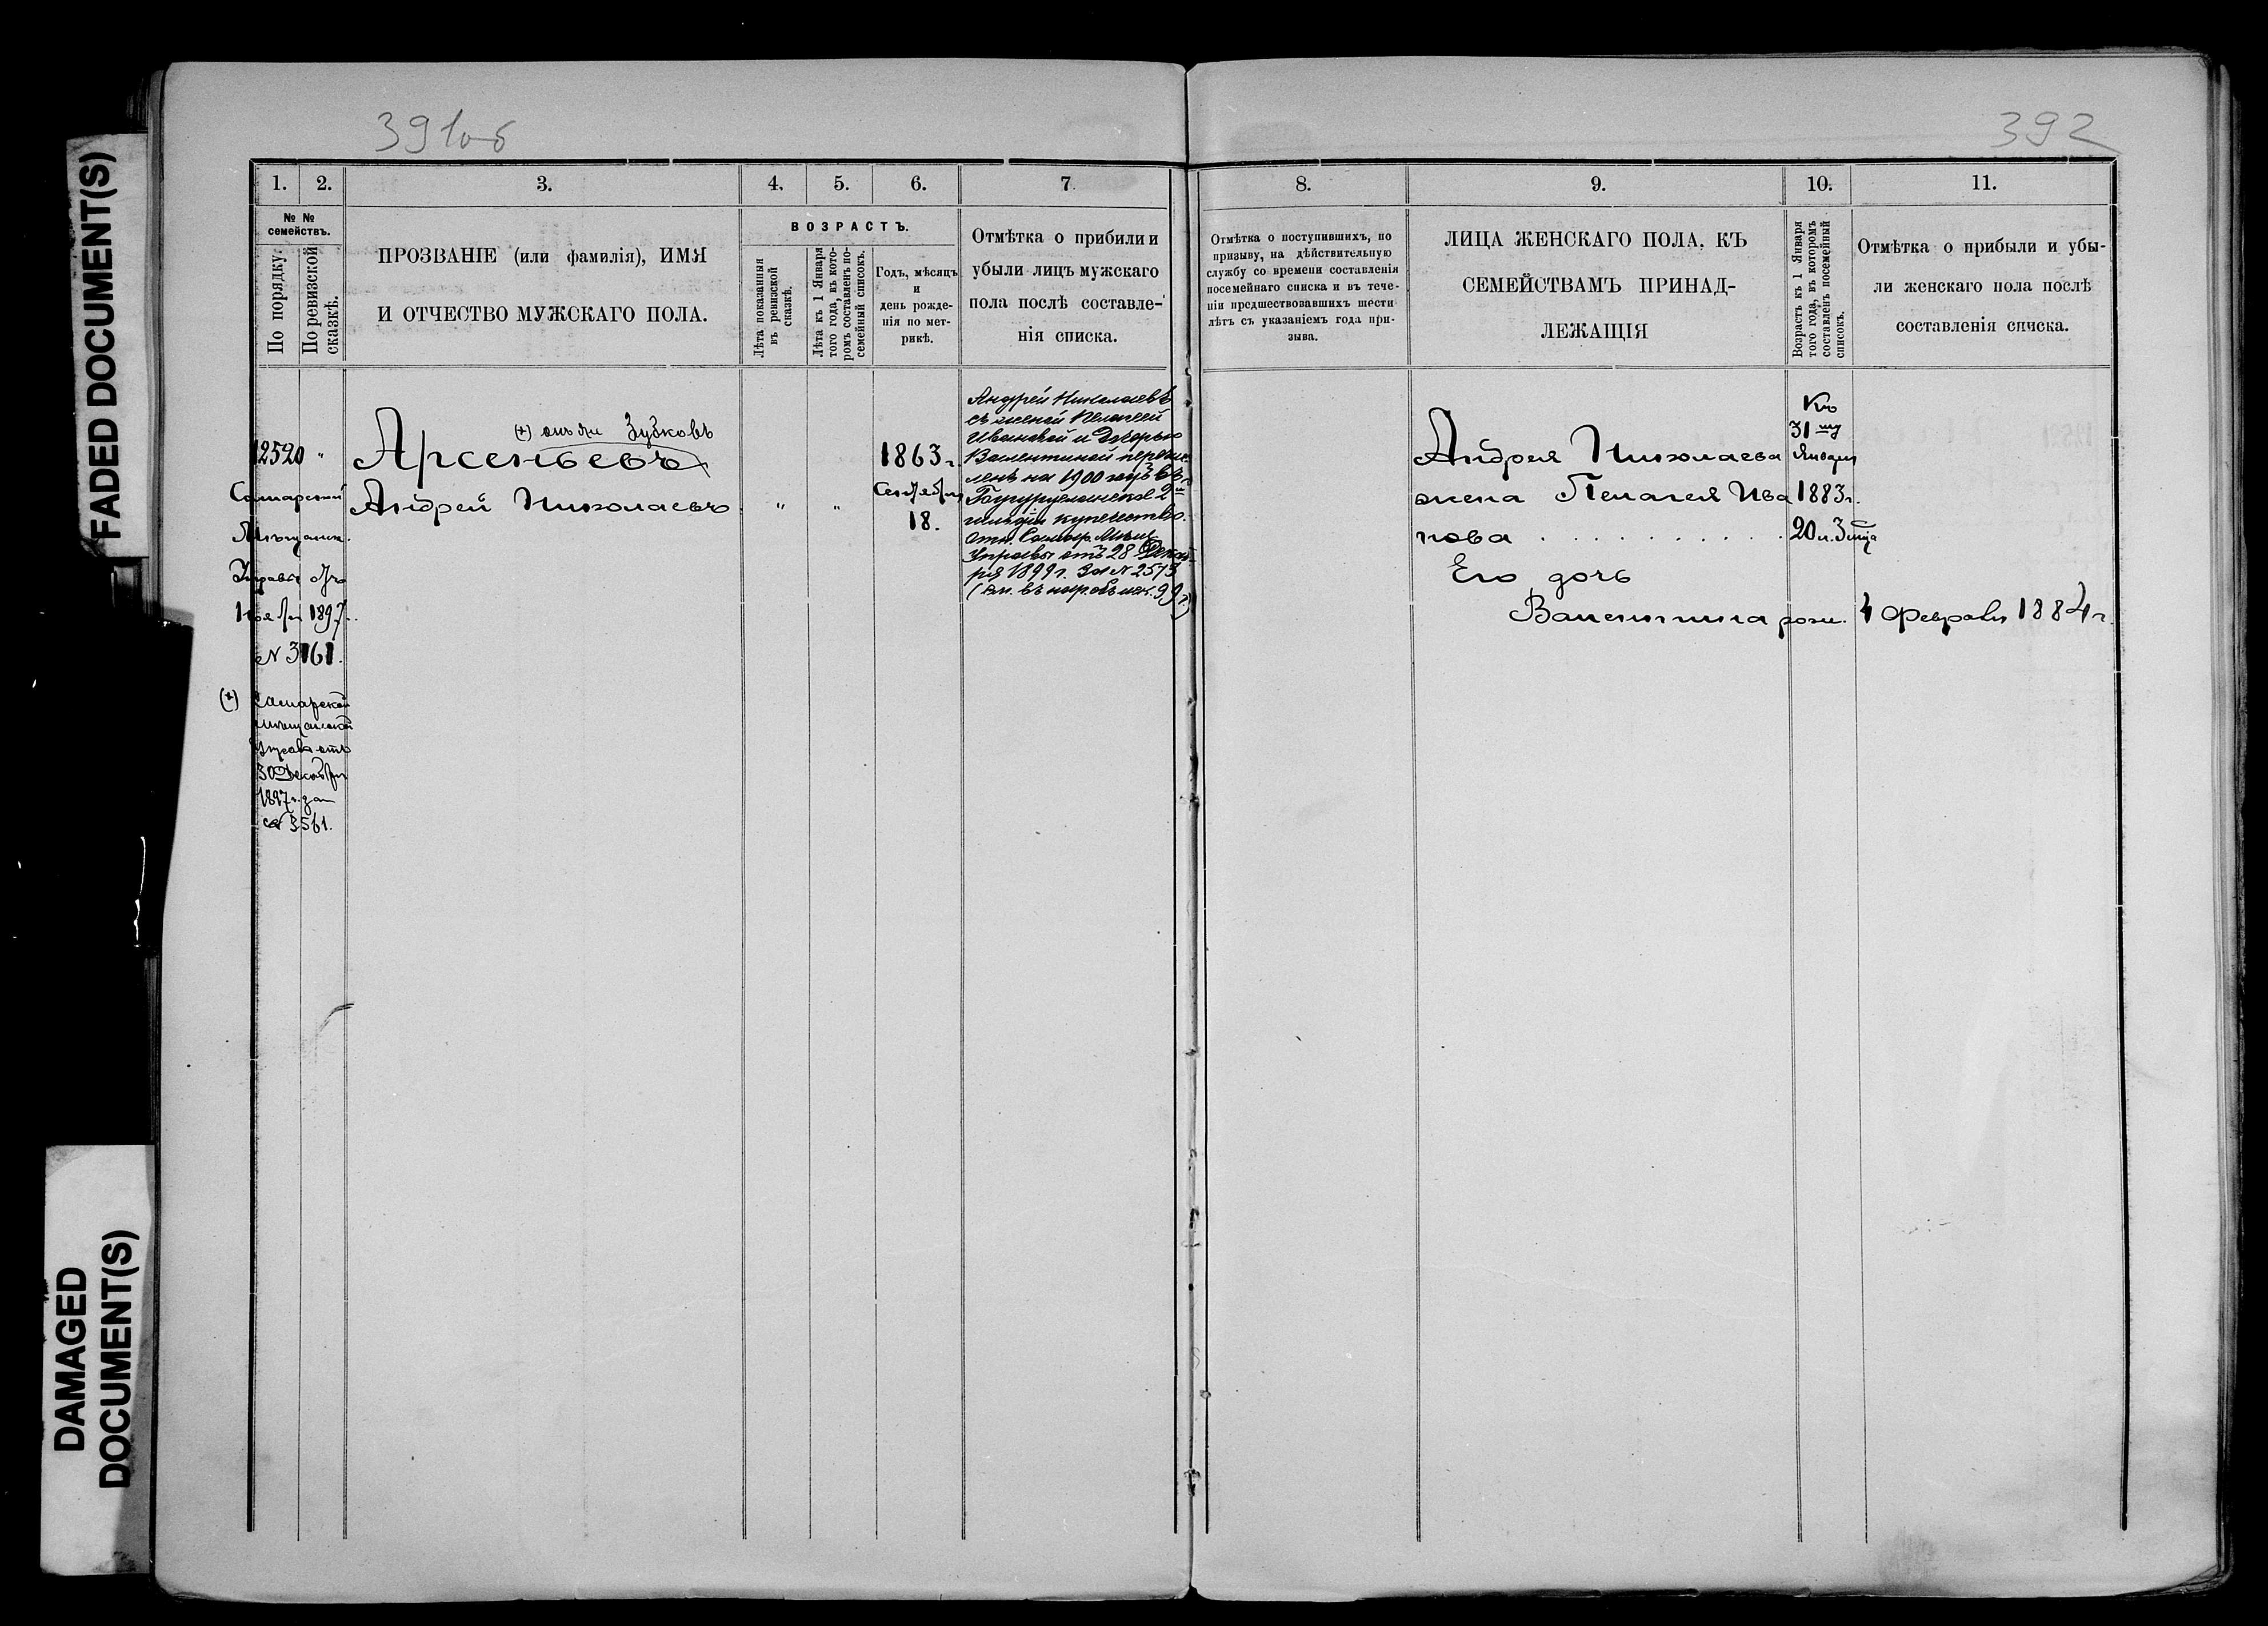 FADED DOCUMENT(S)
DAMAGED
DOCUMENT(S)
391об
1.
2.
3.
4.
5.
6.
7.
№ №
семействъ.
По порядку.
По ревизской
сказкѣ.
ПРОЗВАНІЕ (или фамилія), ИМЯ
И ОТЧЕСТВО МУЖСКАГО ПОЛА.
ВОЗРАСТЪ.
Лѣта показанныя
въ ревизской
сказкѣ.
Лѣта къ 1 Января
того года, въ кото-
ромъ составленъ по-
семейный списокъ.
Годъ, мѣсяцъ
и
день рожде-
нія по мет-
рикѣ.
Отмѣтка о прибыли и
убыли лицъ мужскаго
пола послѣ составле-
нія списка.
12520 "
Самарской
Мѣщанск.
Управы отъ
1897г.
N 3161.
(+) Самарской
мѣщанской
Управы отъ
30 Декабря
1897г. за
N 3561.
(+) онъ же Зубковъ
Арсеньевъ
Андрей Николаевъ
"
"
1863г.
Сентября
18.
Андрей Николаевъ
съ женой Пелагеей
Ивановой и дочерью
Валентиной перечис-
ленъ на 1900 годъ въ
Бугурусланское 2й
гильдіи купечество.
отн. Самар. Мѣщ.
Управы отъ 28 Декаб-
ря 1899г. за N 2573
392
8.
9.
10.
11.
Отмѣтка о поступившихъ, по
призыву, на дѣйствительную
службу со времени составленія
посемейнаго списка и въ тече-
ніи предшествовавшихъ шести
лѣтъ съ указаніемъ года при-
зыва.
ЛИЦА ЖЕНСКАГО ПОЛА, КЪ
СЕМЕЙСТВАМЪ ПРИНАД-
ЛЕЖАЩІЯ
Возрастъ къ 1 Января
того года, въ которомъ
составленъ посемейный
списокъ.
Отмѣтка о прибыли и убы-
ли женскаго пола послѣ
составленія списка.
Андрея Николаева
жена Пелагея Ива
нова . . . . . . . . . .
Къ
31му
Января
1883г.
20л. 3 мца
Его дочь
Валентина рожд. 4 Февраля 1884г.